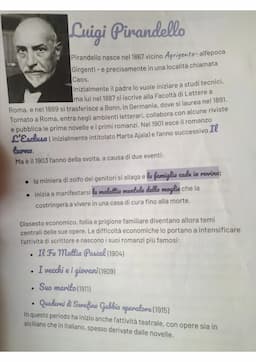 Luigi Pirandello
Pirandello nasce nel 1867 vicino Agrigento - all'epoca
Girgenti - e precisamente in una località chiamata
Caos.
Inizialmente il padre lo vuole iniziare a studi tecnici,
ma lui nel 1887 si iscrive alla Facoltà di Lettere a
Roma, e nel 1889 si trasferisce a Bonn, in Germania, dove si laurea nel 1891.
Tornato a Roma, entra negli ambienti letterari, collabora con alcune riviste
e pubblica le prime novelle e i primi romanzi. Nel 1901 esce il romanzo
L'Esclusa (inizialmente intitolato Marta Ajala) e l'anno successivo Il
turno.
Ma è il 1903 l'anno della svolta, a causa di due eventi:
• la miniera di zolfo dei genitori si allaga e la famiglia cade in rovina;
• inizia a manifestarsi la malattia mentale della moglie che la
costringerà a vivere in una casa di cura fino alla morte.
Dissesto economico, follia e prigione familiare diventano allora temi
centrali delle sue opere. Le difficoltà economiche lo portano a intensificare
l'attività di scrittore e nascono i suoi romanzi più famosi:
• Il Fu Mattia Pascal (1904)
• I vecchi e i giovani (1909)
• Suo marito (1911)
• Quaderni di Serafino Gubbio operatore (1915)
In questo periodo ha inizio anche l'attività teatrale, con opere sia in
siciliano che in italiano, spesso derivate dalle novelle.